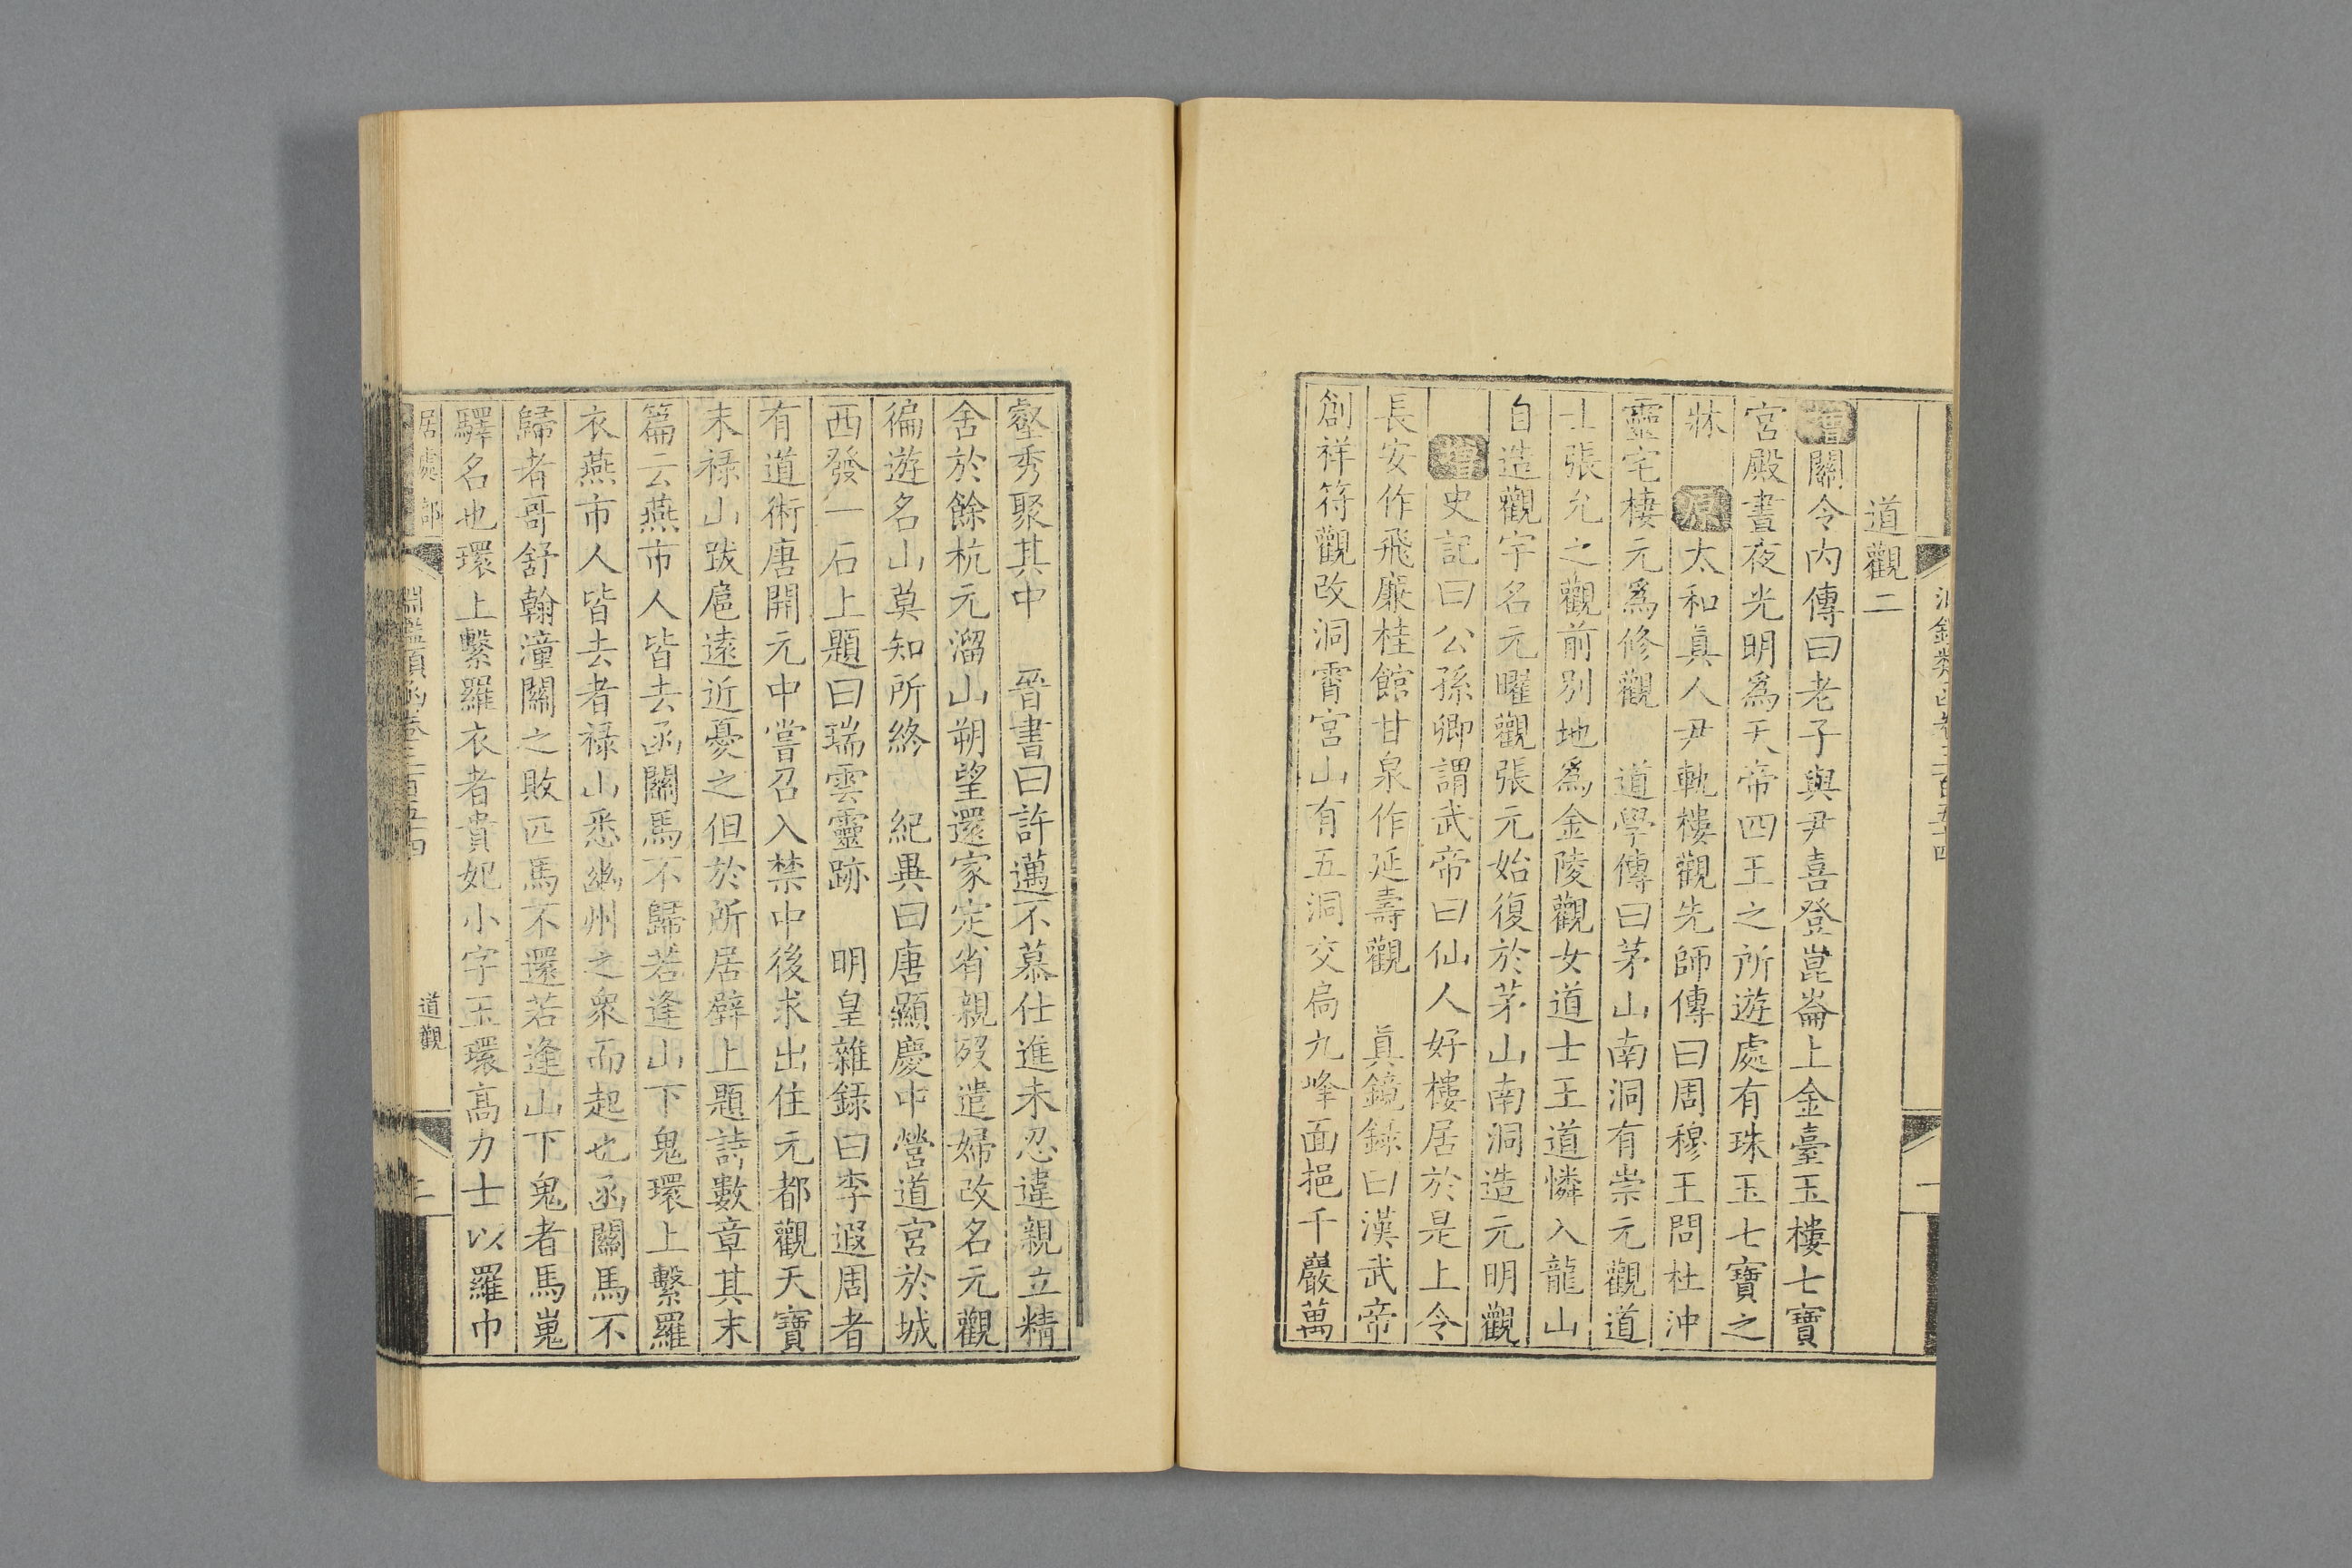 道觀二
增關令内傳曰老子與尹喜登崑崙上金臺玉樓七寶
宮殿晝夜光明爲天帝四王之所遊處有珠玉七寶之
牀　原太和眞人尹軌樓觀先師傳曰周穆王問杜沖
靈宅棲元爲修觀　道學傳曰茅山南洞有崇元觀道
士張允之觀前別地爲金陵觀女道士王道憐入龍山
自造觀宇名元曜觀張元始復於茅山南洞造元明觀
增史記曰公孫卿謂武帝曰仙人好樓居於是上令
長安作飛廉桂館甘泉作延壽觀　眞鏡錄曰漢武帝
創祥符觀改洞霄宮山有五洞交扃九峰面挹千巖萬
壑秀聚其中　晉書曰許邁不慕仕進未忍違親立精
舍於餘杭元溜山朔望還家定省親歿遣婦改名元觀
徧遊名山莫知所終　紀異曰唐顯慶中營道宮於城
西發一石上題曰瑞雲靈跡　明皇雜錄曰李遐周者
有道術唐開元中嘗召入禁中後求出住元都觀天寶
末祿山跋扈遠近憂之但於所居壁上題詩數章其末
篇云燕市人皆去函關馬不歸若逢山下鬼環上繫羅
衣燕市人皆去者祿山悉幽州之衆而起也函關馬不
歸者哥舒翰潼關之敗匹馬不還若逢山下鬼者馬嵬
驛名也環上繫羅衣者貴妃小字玉環高力士以羅巾
居處部
淵鑑類函卷三百五十四
道觀
二